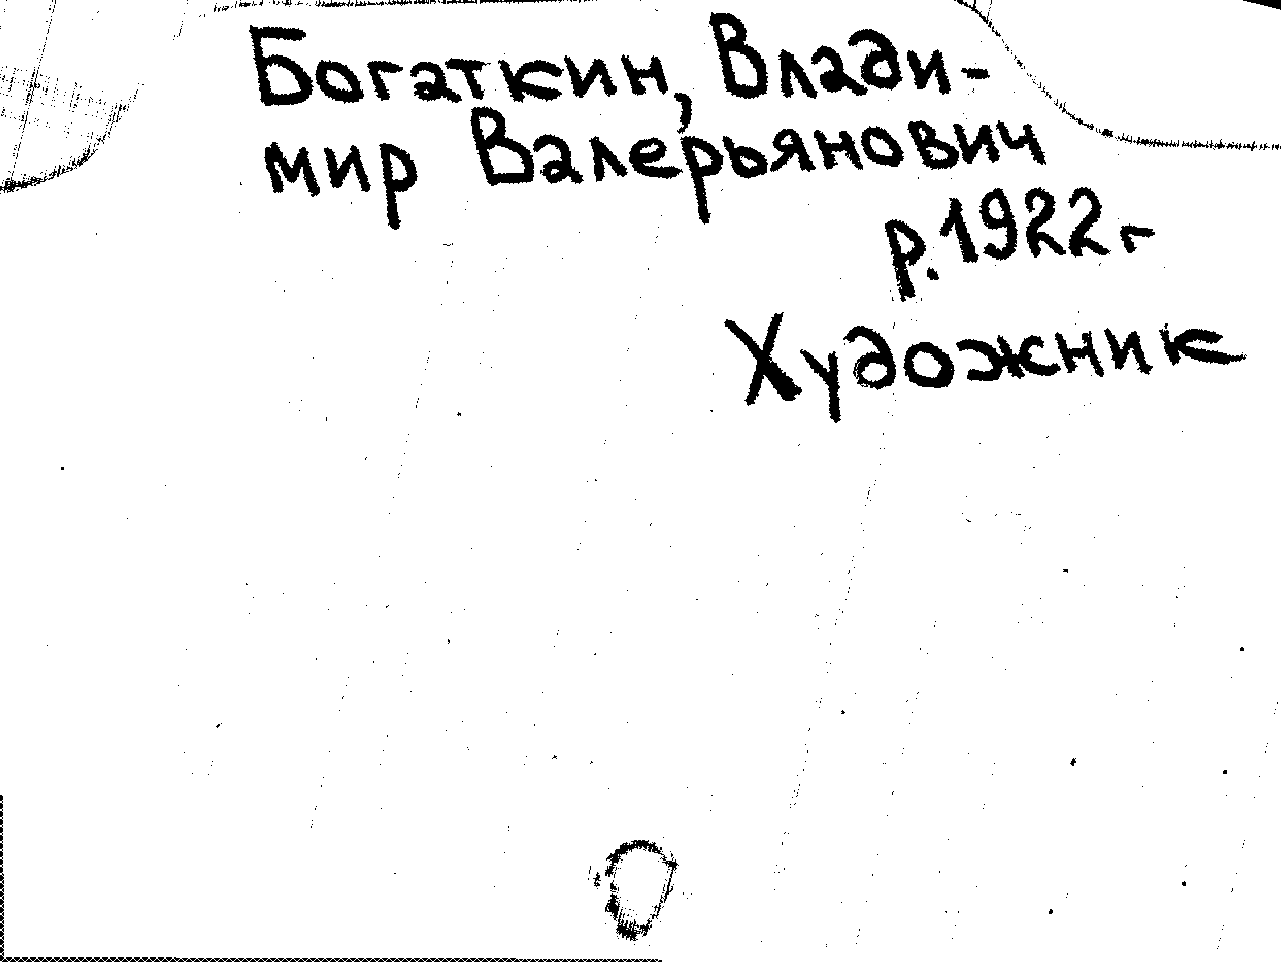 Богаткин, Влади-
мир Валерьянович
р. 1922 г
Художник